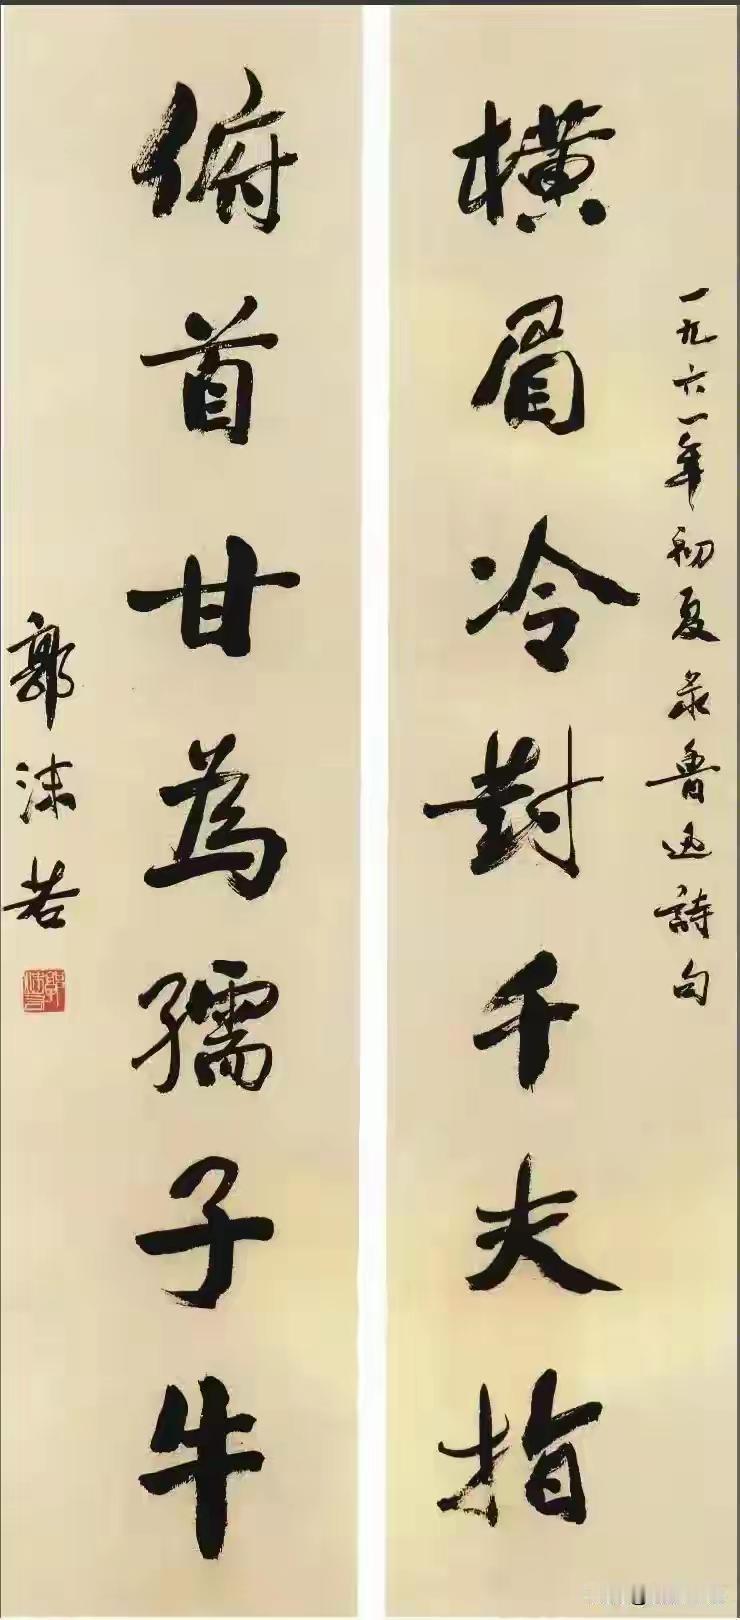 一九六一年初夏录鲁迅詩句
橫眉冷對千夫指
俯首甘為孺子牛
郭沫若
郭沫若